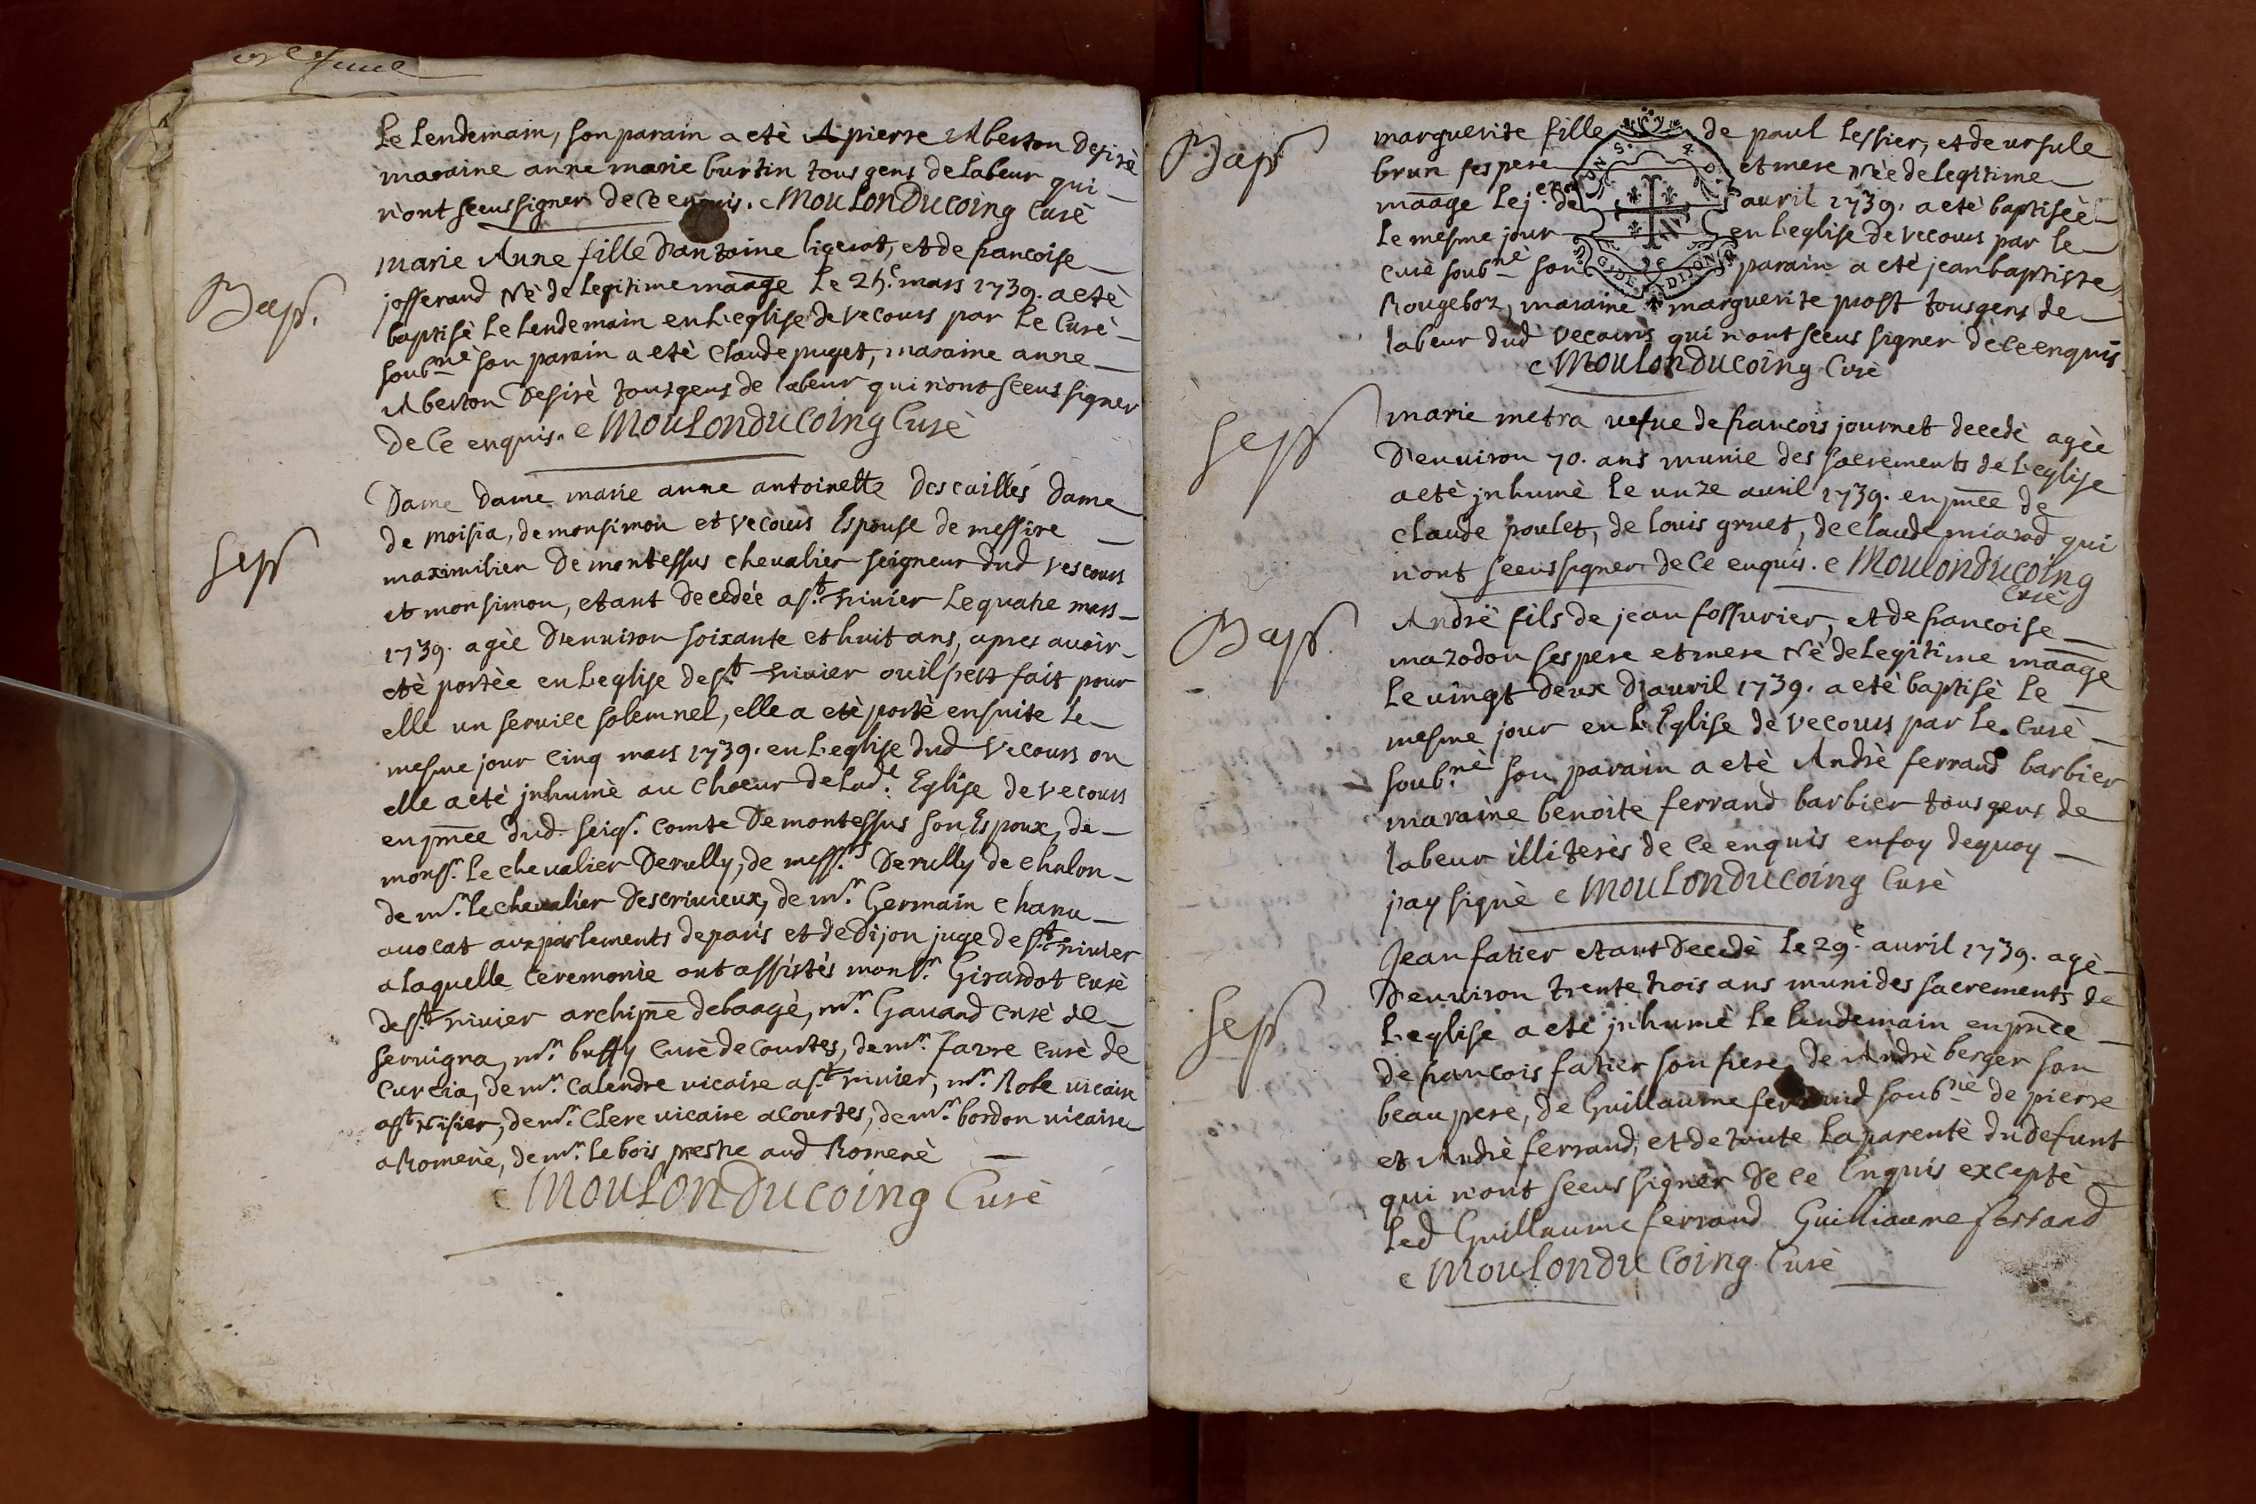 Le Lendemain, son parain a etè pierre Alberton desirè
maraine anne marie burtin tous gens de labeur qui
n'ont sceus signer de ce enquis. C MOULONDUCOing Curè
Bapt.
marie Anne fille d'antoine ligerot, et de francoise
josserand Nè de legitime maage Le 24.e mars 1739. a etè
baptisè Le lendemain en L'eglise de vecours par Le Curè
soub.nè son parain a etè Claude puget, maraine anne
Alberton desirè tous gens de labeur qui n'ont sceus signer
de Ce enquis. C MOULONDUCOing Curè
Sep
Dame Dame marie anne antoinette des caillés dame
de moisia, de monsimon et vecours Espouse de messire
maximilien de montessus chevalier seigneur dud vescours
et monsimon, etant decedée a s.t trivier Le quatre mars
1739. agèe d'environ soixante et huit ans, apres avoir
etè portèe en L'eglise de s.t trivier ou il s'est fait pour
elle un service solemnel, elle a etè portè ensuite Le
mesme jour Cinq mars 1739. en L'eglise dud vecours ou
elle a etè jnhumè au Choeur de Lad.e Eglise de vecours
en pnce dud. seig.r comte de montessus son Espoux, de
mons.r Le chevalier de rully, de mess.rs de rully de chalon
de m.r Le chevalier descrivieux, de m.r Germain chanu
avocat aux parlements de paris et de Dijon juge de s.t trivier
a laquelle ceremonie ont assistès mons.r Girardot curè
de s.t trivier archip.re de baagè, m.r Gavand curè de
servigna, m.r buffy curè de Courtes, de m.r favre curè de
Curcia, de m.r Calendre vicaire a s.t trivier, m.r Robe vicaire
a s.t Nisier, de m.r Clerc vicaire a Courtes, de m.r bordon vicaire
a Romenè, de m.r Lebois prestre aud Romenè
C MOULONDUCOing Curè
Bapt
marguerite fille de paul lessier, et de ursule
brun ses pere et mere Nèe de legitime
maage Le j.er de avril 1739. a etè baptisèe
Le mesme jour en L'eglise de vecours par Le
Curè soub.nè son parain a etè jean baptiste
Rougeboz, maraine marguerite prost tous gens de
labeur dud vecours qui n'ont sceus signer de ce enquis
C MOULONDUCOing Curè
Sep
marie metra vefve de francois journet decedè agèe
d'environ 70. ans munie des sacrements de L'eglise
a etè jnhumè Le unze avril 1739. en pnce de
Claude poulet, de Louis gruet, de Claude miarod qui
n'ont sceus signer de Ce enquis. C MOULONDUCOing
Curè
Bapt.
André fils de jean fossurier, et de francoise
mazodon ses pere et mere Nè de legitime maage
Le vingt deux d'avril 1739. a etè baptisè Le
mesme jour en L'Eglise de vecours par Le Curè
soub.nè son parain a etè Andrè ferrand barbier
maraine benoite ferrand barbier tous gens de
labeur illiterès de Ce enquis en foy de quoy
j'ay signè C MOULONDUCOing Curè
Sep
Jean fatier etant decedè Le 29.e avril 1739. agè
d'environ trente trois ans muni des sacrements de
L'eglise a etè jnhumè Le lendemain en pnce
de francois fatier son frere, de Andrè berger son
beau pere, de Guillaume ferrand soub.nè de pierre
et Andrè ferrand, et de toute La parentè du defunt
qui n'ont sceus signer de Ce Enquis exceptè
Led Guillaume ferrand Guilliaume ferrand
C MOULONDUCOing Curè